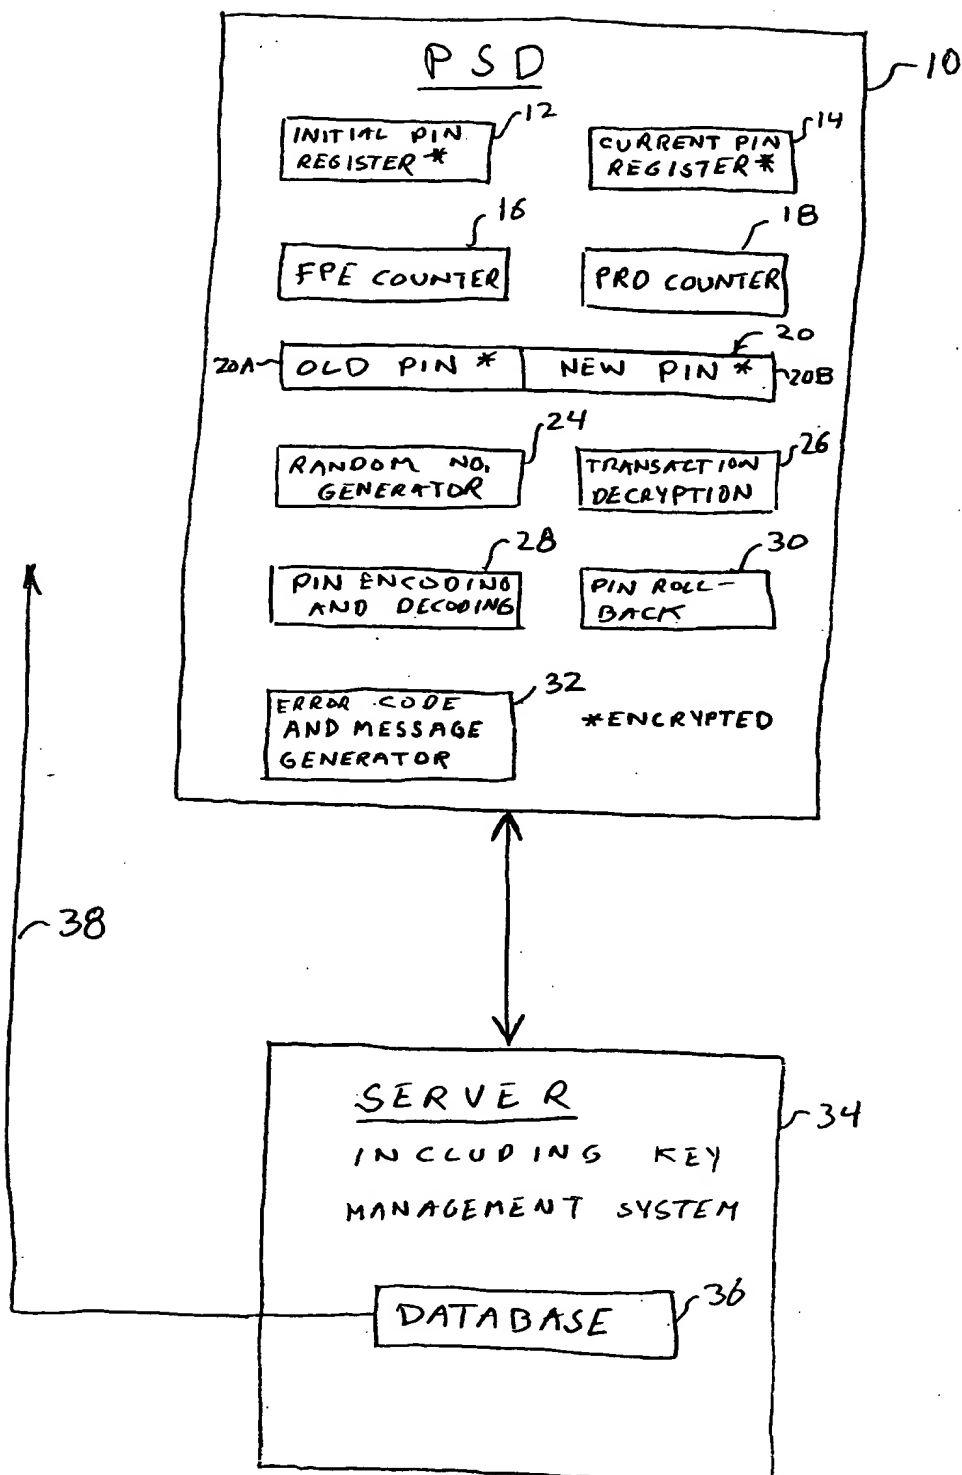 PSD
10
12
INITIAL PIN
REGISTER *
14
CURRENT PIN
REGISTER *
16
FPE COUNTER
18
PRD COUNTER
20
20A
OLD PIN *
NEW PIN *
20B
24
RANDOM NO.
GENERATOR
26
TRANSACTION
DECRYPTION
28
PIN ENCODING
AND DECODING
30
PIN ROLL-
BACK
32
ERROR CODE
AND MESSAGE
GENERATOR
*ENCRYPTED
38
SERVER
34
INCLUDING KEY
MANAGEMENT SYSTEM
36
DATABASE